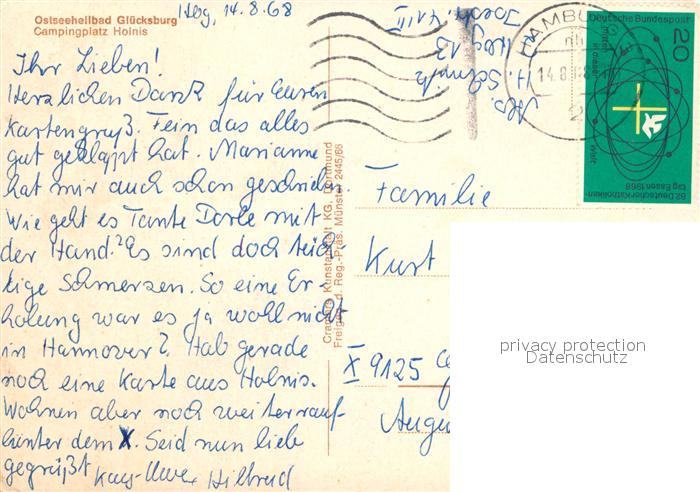 Ostseeheilbad Glücksburg
Campingplatz Holnis
Hbg, 14.8.68
Ihr Lieben!
Herzlichen Dank für Euren
Kartengruß. Fein das alles
gut geklappt hat. Marianne
hat mir auch schon geschrieben.
Wie geht es Tante Dorle mit
der Hand? Es sind doch
Schmerzen. So eine Er-
holung war es ja wohl nicht
in Hannover? Hab gerade
noch eine Karte aus Holnis.
Wohnen aber noch weiter rauf
hinter dem X. Seid nun lieb
gegrüßt
Cramers Kunstanstalt KG, Dortmund
Freigeg. d. Reg.-Präs. Münster 2445/66
Abs.
H.
HAMBURG
14.8.
2
Deutsche Bundespost
20
Mitten
in dieser
Welt
82. Deutscher Katholiken
tag Essen 1968
Familie
Kurt
X 9125
privacy protection
Datenschutz